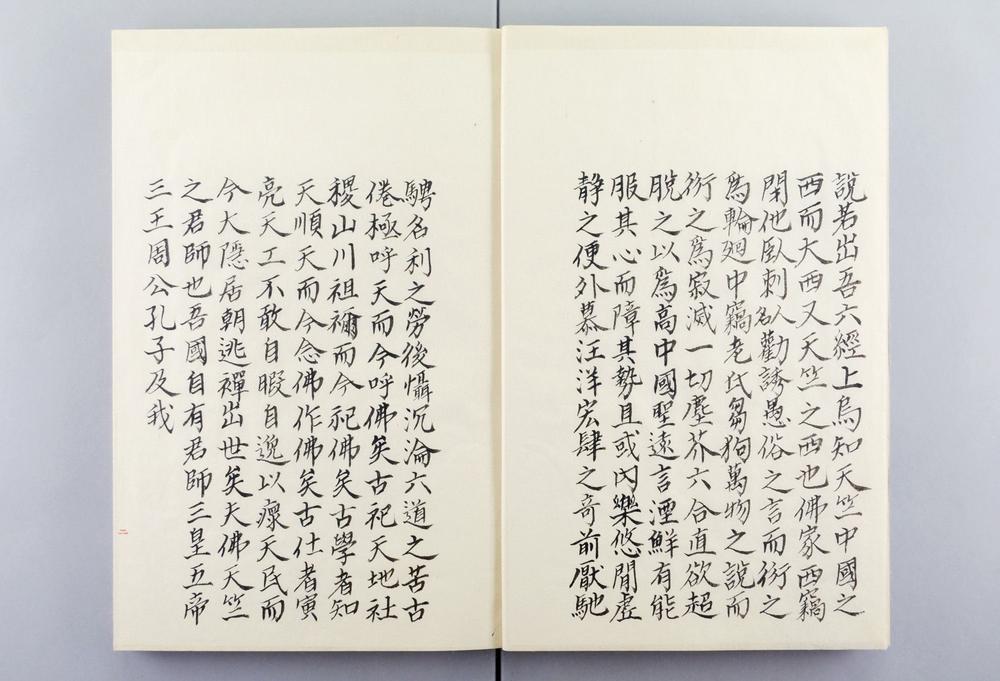 說若出吾六經上烏知天竺中國之
西而大西又天竺之西也佛家西竊
閉他臥剌人名勸誘愚俗之言而衍之
爲輪廻中竊老氏芻狗萬物之說而
衍之爲寂滅一切塵芥六合直欲超
脫之以爲高中國聖遠言湮鮮有能
服其心而障其勢且或內樂悠閒虛
靜之便外慕汪洋宏肆之奇前厭馳
騁名利之勞後懾沉淪六道之苦古
倦極呼天而今呼佛矣古祀天地社
稷山川祖禰而今祀佛矣古學者知
天順天而今念佛作佛矣古仕者寅
亮天工不敢自暇自逸以瘝天民而
今大隱居朝逃禪出世矣夫佛天竺
之君師也吾國自有君師三皇五帝
三王周公孔子及我